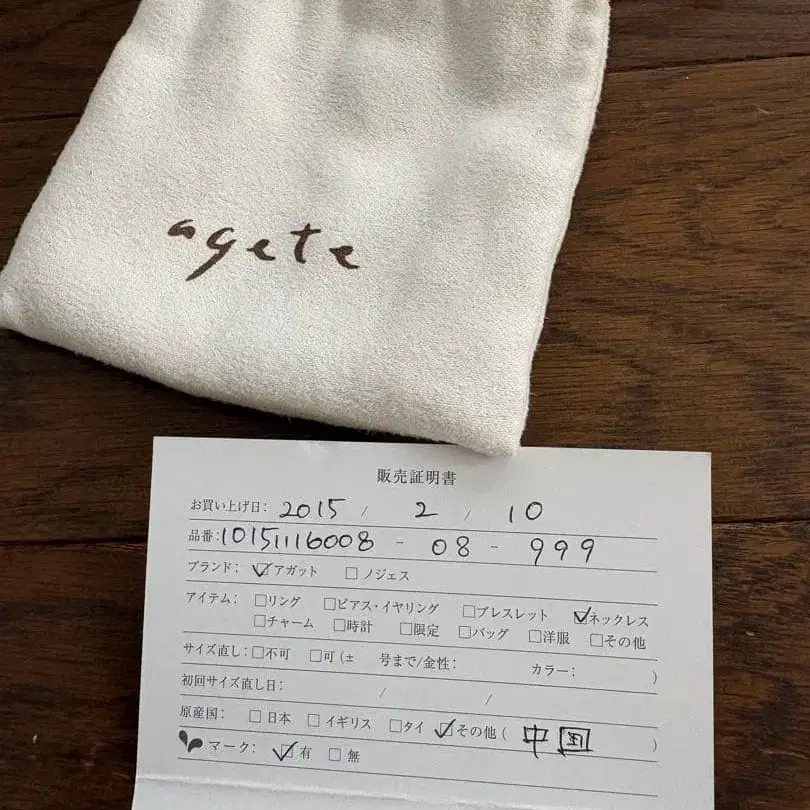 agete
販売証明書
お買い上げ日: 2015 / 2 / 10
品番: 10151116008 - 08 - 999
ブランド: ☑アガット □ノジェス
アイテム: □リング □ピアス・イヤリング □ブレスレット ☑ネックレス
□チャーム □時計 □限定 □バッグ □洋服 □その他
サイズ直し: □不可 □可 (± 号まで/金性: カラー: )
初回サイズ直し日: / /
原産国: □日本 □イギリス □タイ ☑その他 ( 中国 )
マーク: ☑有 □無